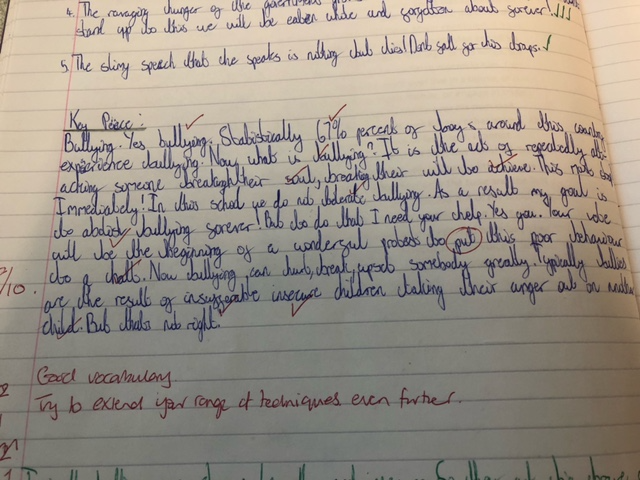 4. The ravaging hunger of the government
stand up to this we will be eaten while and forgotten about forever!
5. The slimy speech that she speaks is nothing but lies! Dont fall for his
Key Peice:
Bullying. Yes bullying. Statistically 67% percent of boys around this country
experience bullying. Now what is bullying? It is the act of repeatedly att-
acking someone breaking their soul, breaking their will to achieve. This must stop
Immediately! In this school we do not tolerate bullying. As a result my goal is
to abolish bullying forever! But to do that I need your help. Yes you. Your vote
will be the beginning of a wonderful protest to put this poor behaviour
to a halt. Now bullying can hurt, break, upset somebody greatly. Typically bullies
are the result of insufferable insecure children taking their anger out on another
child. But thats not right.
/10.
Good vocabulary
Try to extend your range of techniques even further.